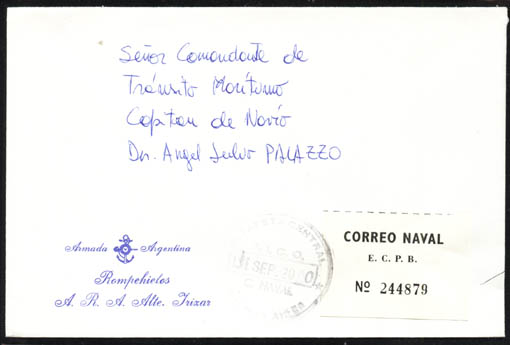 Señor Comandante de
Tránsito Marítimo
Capitan de Navío
Dn. Angel Julio PALAZZO
Armada Argentina
Rompehielos
A. R. A. Alte. Irizar
CENTRAL
SEP. 20
C. NAVAL
CORREO NAVAL
E. C. P. B.
Nº 244879